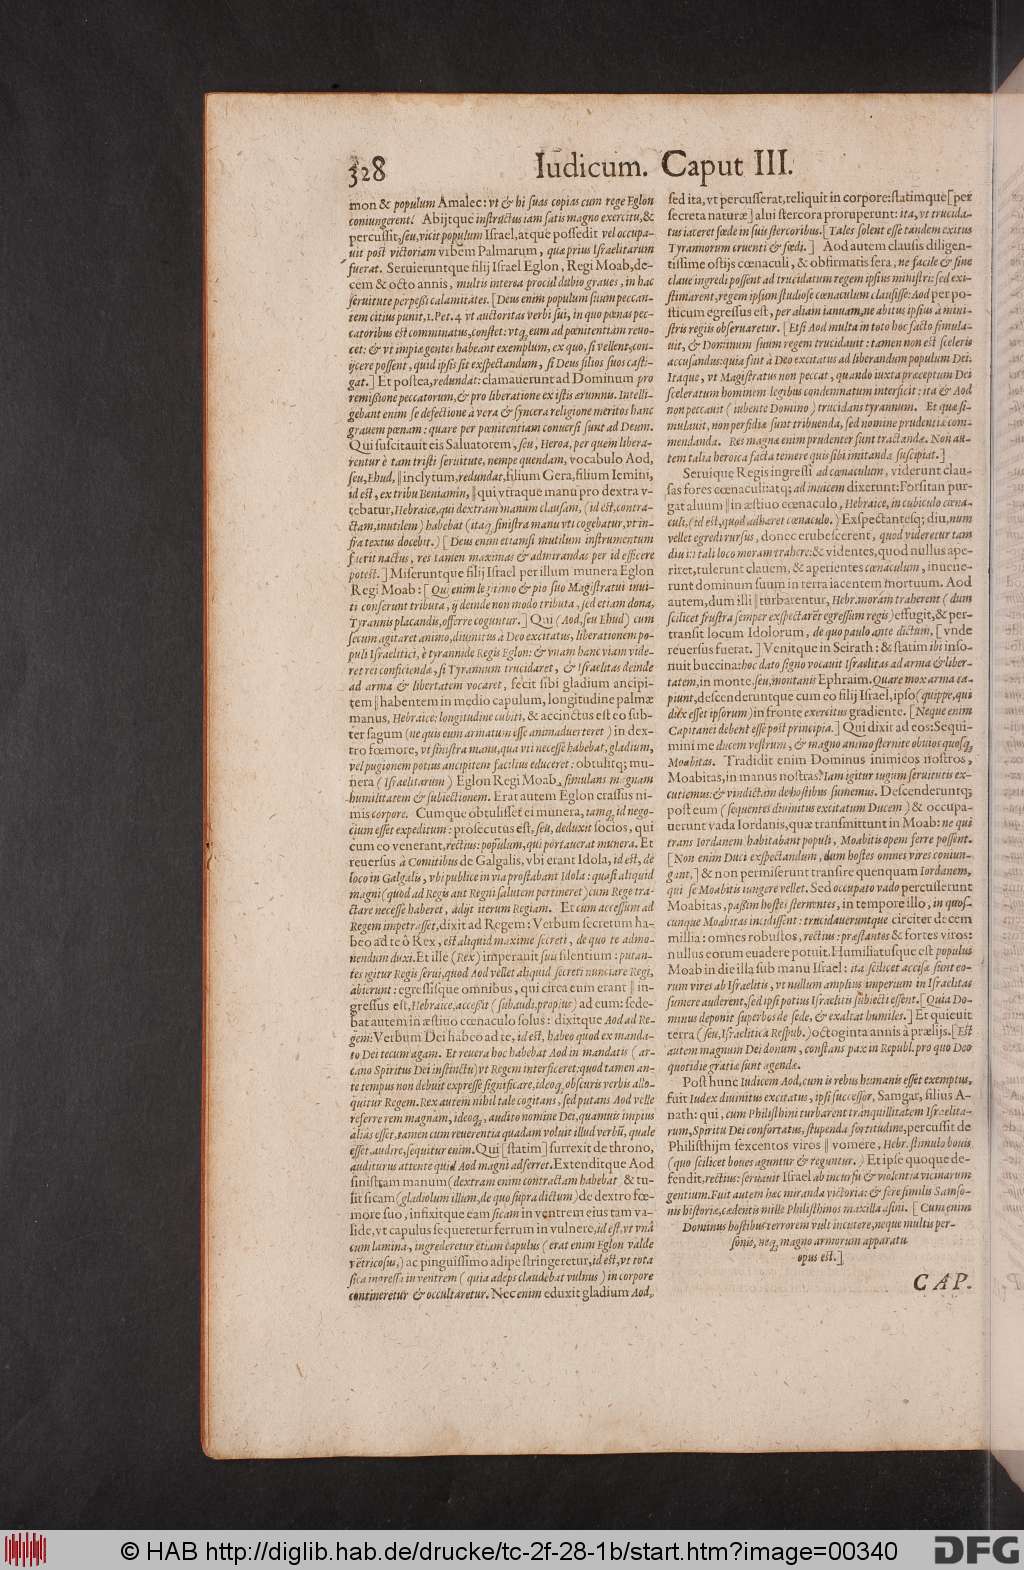 328
Iudicum. Caput III.
mon & populum Amalec: vt & hi suas copias cum rege Eglon
coniungerent. Abijtque instructus iam satis magno exercitu, &
percussit, seu, vicit populum Israel, atque possedit vel occupa-
uit post victoriam vrbem Palmarum, quæ prius Israelitarum
fuerat. Seruieruntque filij Israel Eglon, Regi Moab, de-
cem & octo annis, multis interea procul dubio graues, in hac
seruitute perpeßi calamitates. [Deus enim populum suum peccan-
tem citius punit, 1. Pet. 4 vt auctoritas verbi sui, in quo pœnas pec-
catoribus est comminatus, constet: vtq́; eum ad pœnitentiam reuo-
cet: & vt impiæ gentes habeant exemplum, ex quo, si vellent, con-
ijcere possent, quid ipsis sit exspectandum, si Deus filios suos casti-
gat.] Et postea, redundat: clamauerunt ad Dominum pro
remißione peccatorum, & pro liberatione ex istis ærumnis. Intelli-
gebant enim se defectione à vera & syncera religione meritos hanc
grauem pœnam: quare per pœnitentiam conuersi sunt ad Deum.
Qui suscitauit eis Saluatorem, seu, Heroa, per quem libera-
rentur è tam tristi seruitute, nempe quendam, vocabulo Aod,
seu, Ehud, || inclytum, redundat, filium Gera, filium Iemini,
id est, ex tribu Beniamin, || qui vtraque manu pro dextra v-
tebatur, Hebraice, qui dextram manum clausam, (id est, contra-
ctam, inutilem) habebat (itaq́; sinistra manu vti cogebatur, vt in-
fra textus docebit.) [Deus enim etiamsi inutilum instrumentum
fuerit nactus, res tamen maximas & admirandas per id efficere
potest.] Miseruntque filij Israel per illum munera Eglon
Regi Moab: [Qui enim legitimo & pio suo Magistratui inui-
ti conferunt tributa, ij deinde non modo tributa, sed etiam dona,
Tyrannis placandis, offerre coguntur.] Qui (Aod, seu Ehud) cum
secum agitaret animo, diuinitus à Deo excitatus, liberationem po-
puli Israelitici, è tyrannide Regis Eglon: & vnam hanc viam vide-
ret rei conficiendæ, si Tyrannum trucidaret, & Israelitas deinde
ad arma & libertatem vocaret, fecit sibi gladium ancipi-
tem || habentem in medio capulum, longitudine palmæ
manus, Hebraice: longitudine cubiti, & accinctus est eo sub-
ter sagum (ne quis eum armatum esse animaduerteret) in dex-
tro fœmore, vt sinistra manu, qua vti necesse habebat, gladium,
vel pugionem potius ancipitem facilius educeret: obtulitq́; mu-
nera (Israelitarum) Eglon Regi Moab, simulans magnam
humilitatem & subiectionem. Erat autem Eglon crassus ni-
mis corpore. Cumque obtulisset ei munera, tamq́; id nego-
cium esset expeditum: prosecutus est, seu, deduxit socios, qui
cum eo venerant, rectius: populum, qui portauerat munera. Et
reuersus à Comitibus de Galgalis, vbi erant Idola, id est, de
loco in Galgalis, vbi publice in via prostabant Idola: quasi aliquid
magni (quod ad Regis aut Regni salutem pertineret) cum Rege tra-
ctare necesse haberet, adijt iterum Regiam. Et cum accessum ad
Regem impetrasset, dixit ad Regem: Verbum secretum ha-
beo ad te ô Rex, est aliquid maxime secreti, de quo te admo-
nendum duxi. Et ille (Rex) imperauit suis silentium: putan-
tes igitur Regis serui, quod Aod vellet aliquid secreti nunciare Regi,
abierunt: egressisque omnibus, qui circa eum erant || in-
gressus est, Hebraice, accessit (sub. audi, propius) ad eum: sede-
bat autem in æstiuo cœnaculo solus: dixitque Aod ad Re-
gem: Verbum Dei habeo ad te, id est, habeo quod ex manda-
to Dei tecum agam. Et reuera hoc habebat Aod in mandatis (ar-
cano Spiritus Dei instinctu) vt Regem interficeret: quod tamen an-
te tempus non debuit expresse significare, ideoq́; obscuris verbis allo-
quitur Regem. Rex autem nihil tale cogitans, sed putans Aod velle
referre rem magnam, ideoq́;, audito nomine Dei, quamuis impius
aliàs esset, tamen cum reuerentia quadam voluit illud verbū, quale
esset, audire, sequitur enim. Qui [statim] surrexit de throno,
auditurus attente quid Aod magni adferret. Extenditque Aod
sinistram manum (dextram enim contractam habebat) & tu-
lit sicam (gladiolum illum, de quo supra dictum) de dextro fœ-
more suo, infixitque eam sicam in ventrem eius tam va-
lide, vt capulus sequeretur ferrum in vulnere, id est, vt vnà
cum lamina, ingrederetur etiam capulus (erat enim Eglon valde
vētricosus,) ac pinguissimo adipe stringeretur, id est, vt tota
sica ingressa in ventrem (quia adeps claudebat vulnus) in corpore
contineretur & occultaretur. Nec enim eduxit gladium Aod,
sed ita, vt percusserat, reliquit in corpore: statimque [per
secreta naturæ] alui stercora proruperunt: ita, vt trucida-
tus iaceret fœde in suis stercoribus. [Tales solent esse tandem exitus
Tyrannorum cruenti & fœdi.] Aod autem clausis diligen-
tissime ostijs cœnaculi, & obfirmatis sera, ne facile & sine
claue ingredi possent ad trucidatum regem ipsius ministri: sed exi-
stimarent, regem ipsum studiose cœnaculum clausisse: Aod per po-
sticum egressus est, per aliam ianuam, ne abitus ipsius à mini-
stris regis obseruaretur. [Etsi Aod multa in toto hoc facto simula-
uit, & Dominum suum regem trucidauit: tamen non est sceleris
accusandus: quia fuit à Deo excitatus ad liberandum populum Dei.
Itaque, vt Magistratus non peccat, quando iuxta præceptum Dei
sceleratum hominem legibus condemnatum interficit: ita & Aod
non peccauit (iubente Domino) trucidans tyrannum. Et quæ si-
mulauit, non perfidiæ sunt tribuenda, sed nomine prudentiæ com-
mendanda. Res magnæ enim prudenter sunt tractandæ. Non au-
tem talia heroica facta temere quis sibi imitanda suscipiat.]
Seruique Regis ingressi ad cœnaculum, viderunt clau-
sas fores cœnaculi, atq́; ad inuicem dixerunt: Forsitan pur-
gat aluum || in æstiuo cœnaculo, Hebraice, in cubiculo cœna-
culi, (id est, quod adhæret cœnaculo.) Exspectantesq́; diu, num
vellet egredi rursus, donec erubescerent, quod videretur tam
diu in tali loco moram trahere: & videntes, quod nullus ape-
riret, tulerunt clauem, & aperientes cœnaculum, inuene-
runt dominum suum in terra iacentem mortuum. Aod
autem, dum illi || turbarentur, Hebr. moram traherent (dum
scilicet frustra semper exspectarēt egressum regis) effugit, & per-
transit locum Idolorum, de quo paulo ante dictum, [vnde
reuersus fuerat.] Venitque in Seirath: & statim ibi inso-
nuit buccina: hoc dato signo vocauit Israelitas ad arma & liber-
tatem, in monte. seu, montanis Ephraim. Quare mox arma ca-
piunt, descenderuntque cum eo filij Israel, ipso (quippe, qui
dux esset ipsorum) in fronte exercitus gradiente. [Neque enim
Capitanei debent esse post principia.] Qui dixit ad eos: Sequi-
mini me ducem vestrum, & magno animo sternite obuios quosq́;
Moabitas. Tradidit enim Dominus inimicos nostros,
Moabitas, in manus nostras. Iam igitur iugum seruitutis ex-
cutiemus: & vindictam de hostibus sumemus. Descenderuntq́;
post eum (sequentes diuinitus excitatum Ducem) & occupa-
uerunt vada Iordanis, quæ transmittunt in Moab: ne qui
trans Iordanem habitabant populi, Moabitis opem ferre possent.
[Non enim Duci exspectandum, dum hostes omnes vires coniun-
gant,] & non permiserunt transire quenquam Iordanem,
qui se Moabitis iungere vellet. Sed occupato vado percusserunt
Moabitas, paßim hostes sternentes, in tempore illo, in quos-
cunque Moabitas incidissent: trucidaueruntque circiter decem
millia: omnes robustos, rectius: præstantes & fortes viros:
nullus eorum euadere potuit. Humiliatusque est populus
Moab in die illa sub manu Israel: ita scilicet accisæ sunt eo-
rum vires ab Israelitis, vt nullum amplius imperium in Israelitas
sumere auderent, sed ipsi potius Israelitis subiecti essent. [Quia Do-
minus deponit superbos de sede, & exaltat humiles.] Et quieuit
terra (seu, Israelitica Respub.) octoginta annis à prælijs. [Est
autem magnum Dei donum, constans pax in Republ. pro quo Deo
quotidie gratiæ sunt agendæ.
Post hunc Iudicem Aod, cum is rebus humanis esset exemptus,
fuit Iudex diuinitus excitatus, ipsi successor, Samgar, filius A-
nath: qui, cum Philisthini turbarent tranquillitatem Israelita-
rum, Spiritu Dei confortatus, stupenda fortitudine, percussit de
Philisthijm sexcentos viros || vomere, Hebr. stimulo bouis
(quo scilicet boues aguntur & reguntur.) Et ipse quoque de-
fendit, rectius: seruauit Israel ab incursu & violentia vicinarum
gentium. Fuit autem hæc miranda victoria: & fere similis Samso-
nis historiæ, cædentis mille Philisthinos maxilla asini. [Cum enim
Dominus hostibus terrorem vult incutere, neque multis per-
sonis, neq́; magno armorum apparatu
opus est.]
CAP.
© HAB http://diglib.hab.de/drucke/tc-2f-28-1b/start.htm?image=00340
DFG